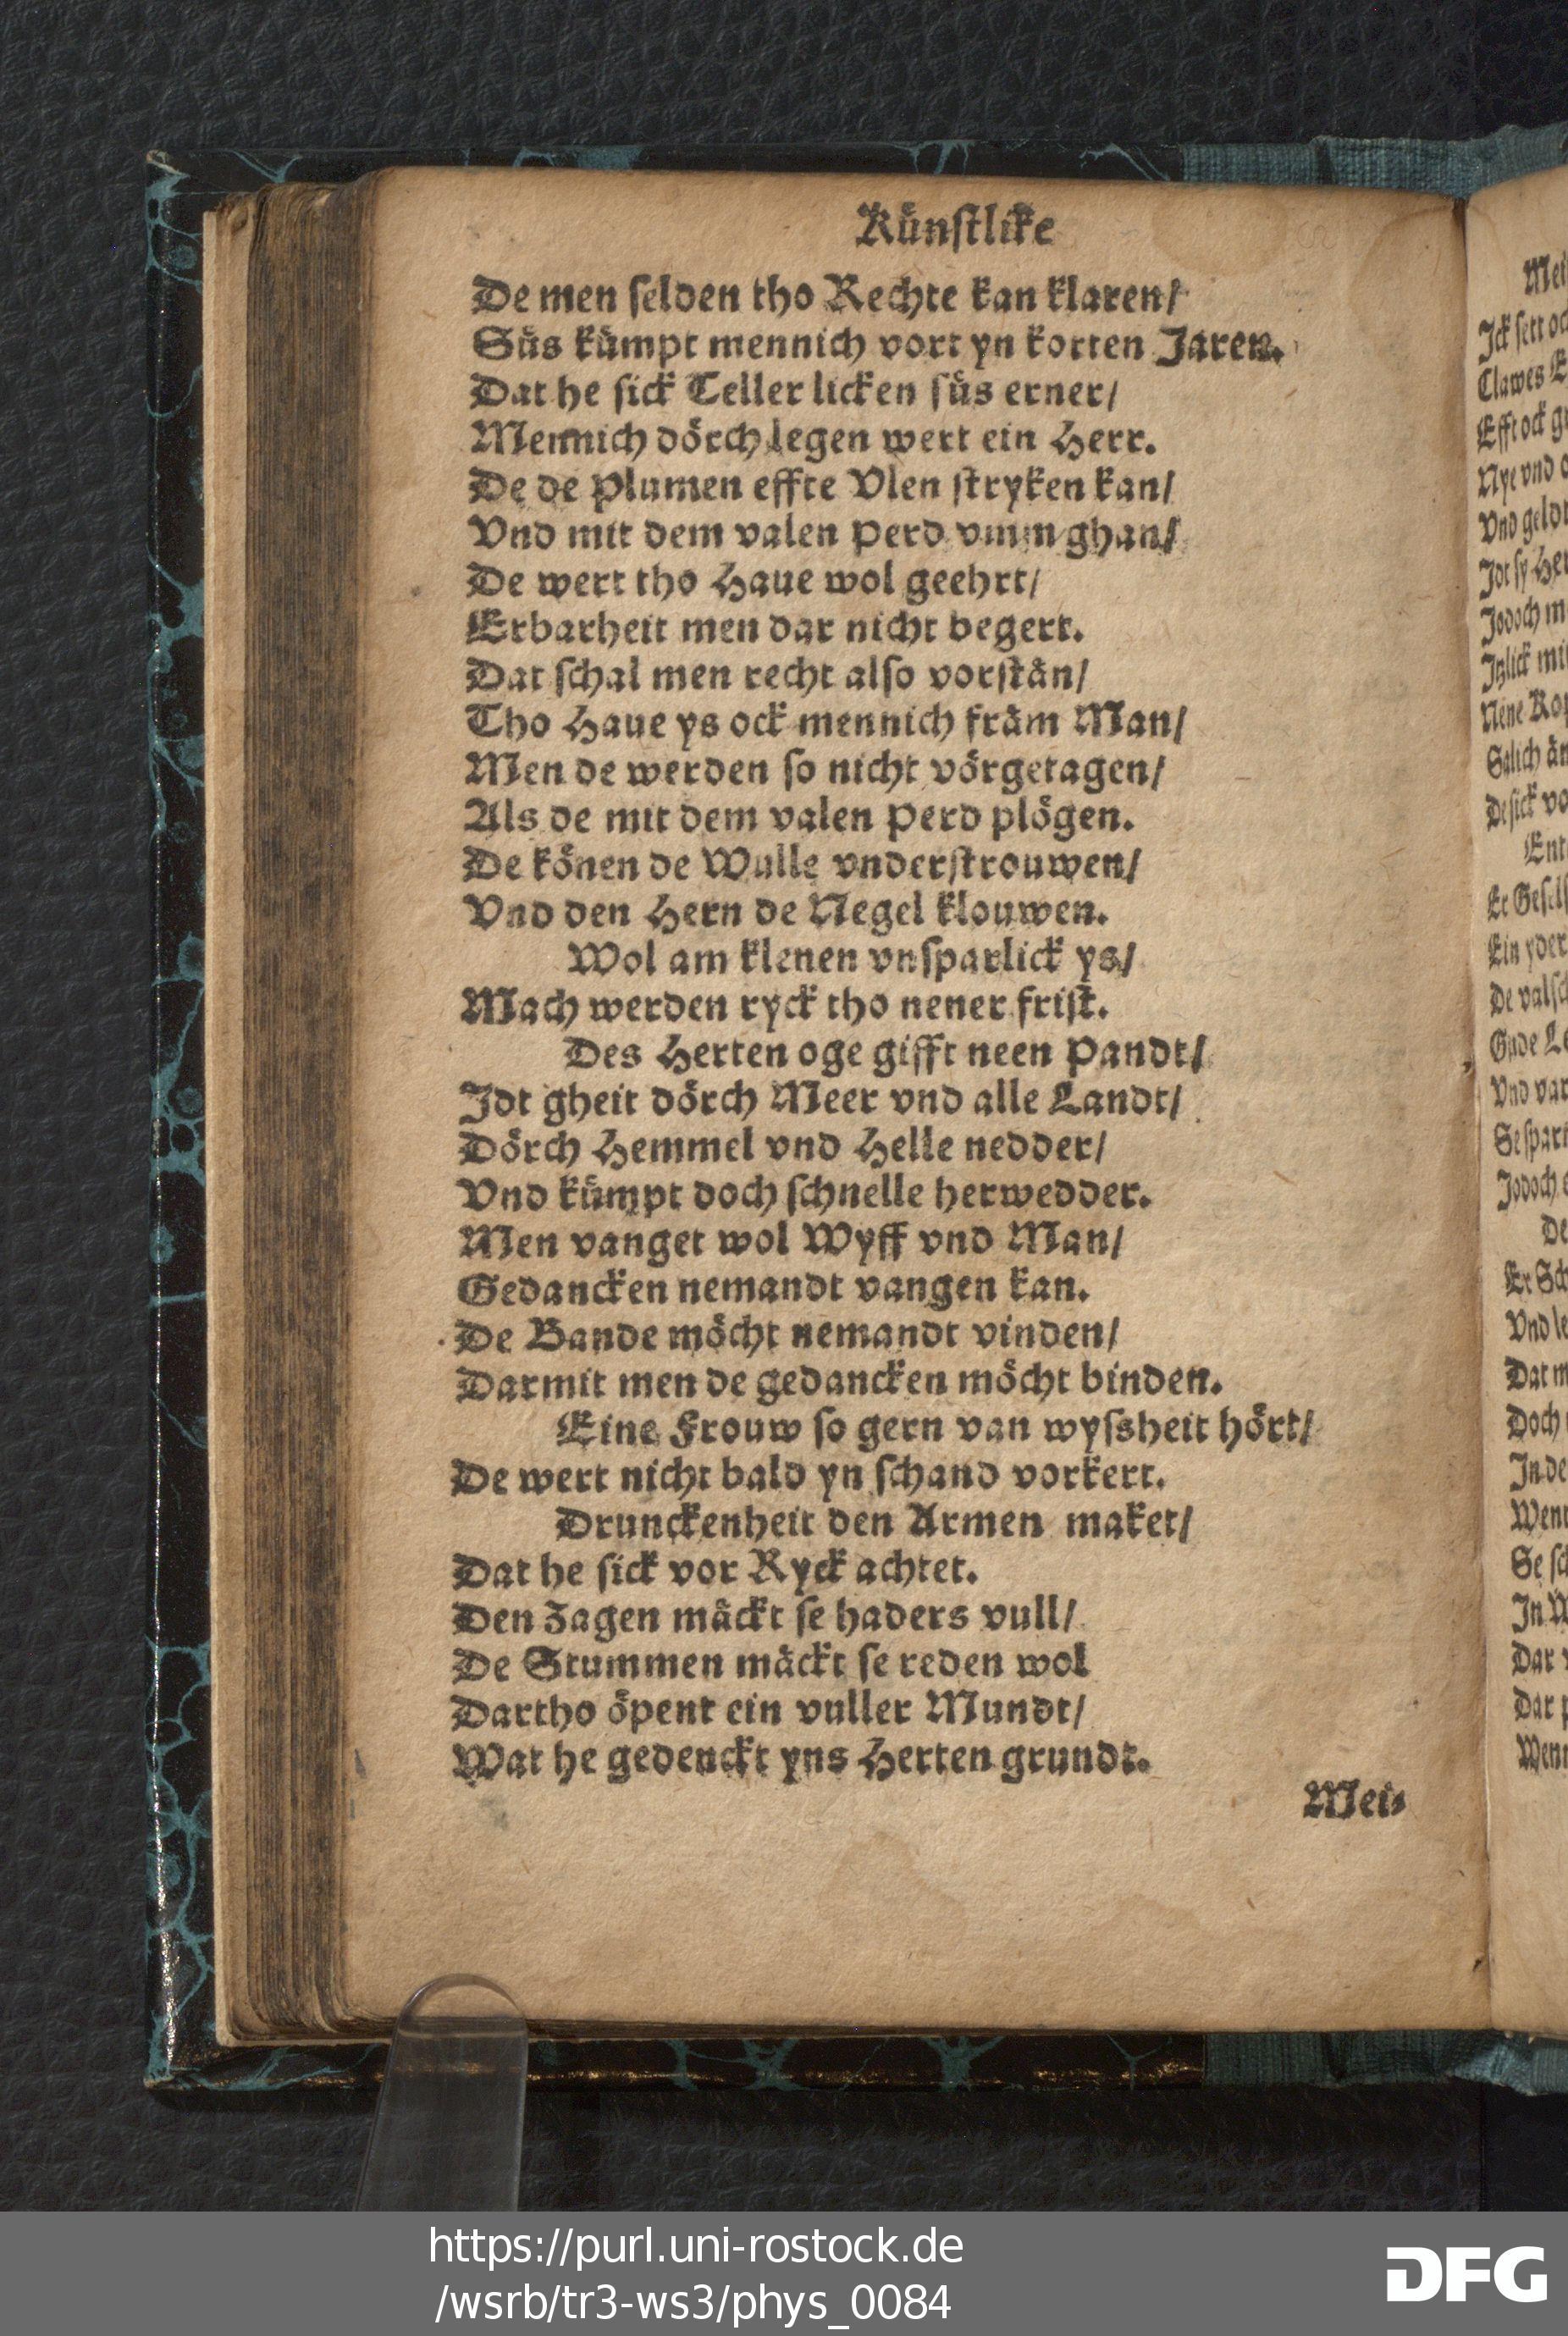 Künstlike
De men selden tho Rechte kan klaren/
Süs kümpt mennich vort yn korten Jaren.
Dat he sick Teller licken süs erner/
Mennich dörch legen wert ein Herr.
De de Plumen effte Vlen stryken kan/
Vnd mit dem valen Perd vmm ghan/
De wert tho Haue wol geehrt/
Erbarheit men dar nicht begert.
Dat schal men recht also vorstån/
Tho Haue ys ock mennich fråm Man/
Men de werden so nicht vörgetagen/
Als de mit dem valen Perd plögen.
De könen de Wulle vnderstrouwen/
Vnd den Hern de Negel klouwen.
Wol am klenen vnsparlick ys/
Mach werden ryck tho nener frist.
Des Herten oge gifft neen Pandt/
Jdt gheit dörch Meer vnd alle Landt/
Dörch Hemmel vnd Helle nedder/
Vnd kümpt doch schnelle herwedder.
Men vanget wol Wyff vnd Man/
Gedancken nemandt vangen kan.
De Bande möcht nemandt vinden/
Darmit men de gedancken möcht binden.
Eine Frouw so gern van wyssheit hört/
De wert nicht bald yn schand vorkert.
Drunckenheit den Armen maket/
Dat he sick vor Ryck achtet.
Den Zagen mäckt se haders vull/
De Stummen mäckt se reden wol
Dartho öpent ein vuller Mundt/
Wat he gedenckt yns Herten grundt.
Mei-
Jck sett
Clawes
Efft ock
Nye vnd
Vnd
Jdt sy
Jodoch
Jtzlick
Nene
Salich
De sick
Ein yder
De
Gude
Vnd
Jodoch
De
Vnd
Dat
Doch
Dar
Dar
https://purl.uni-rostock.de
/wsrb/tr3-ws3/phys_0084
DFG